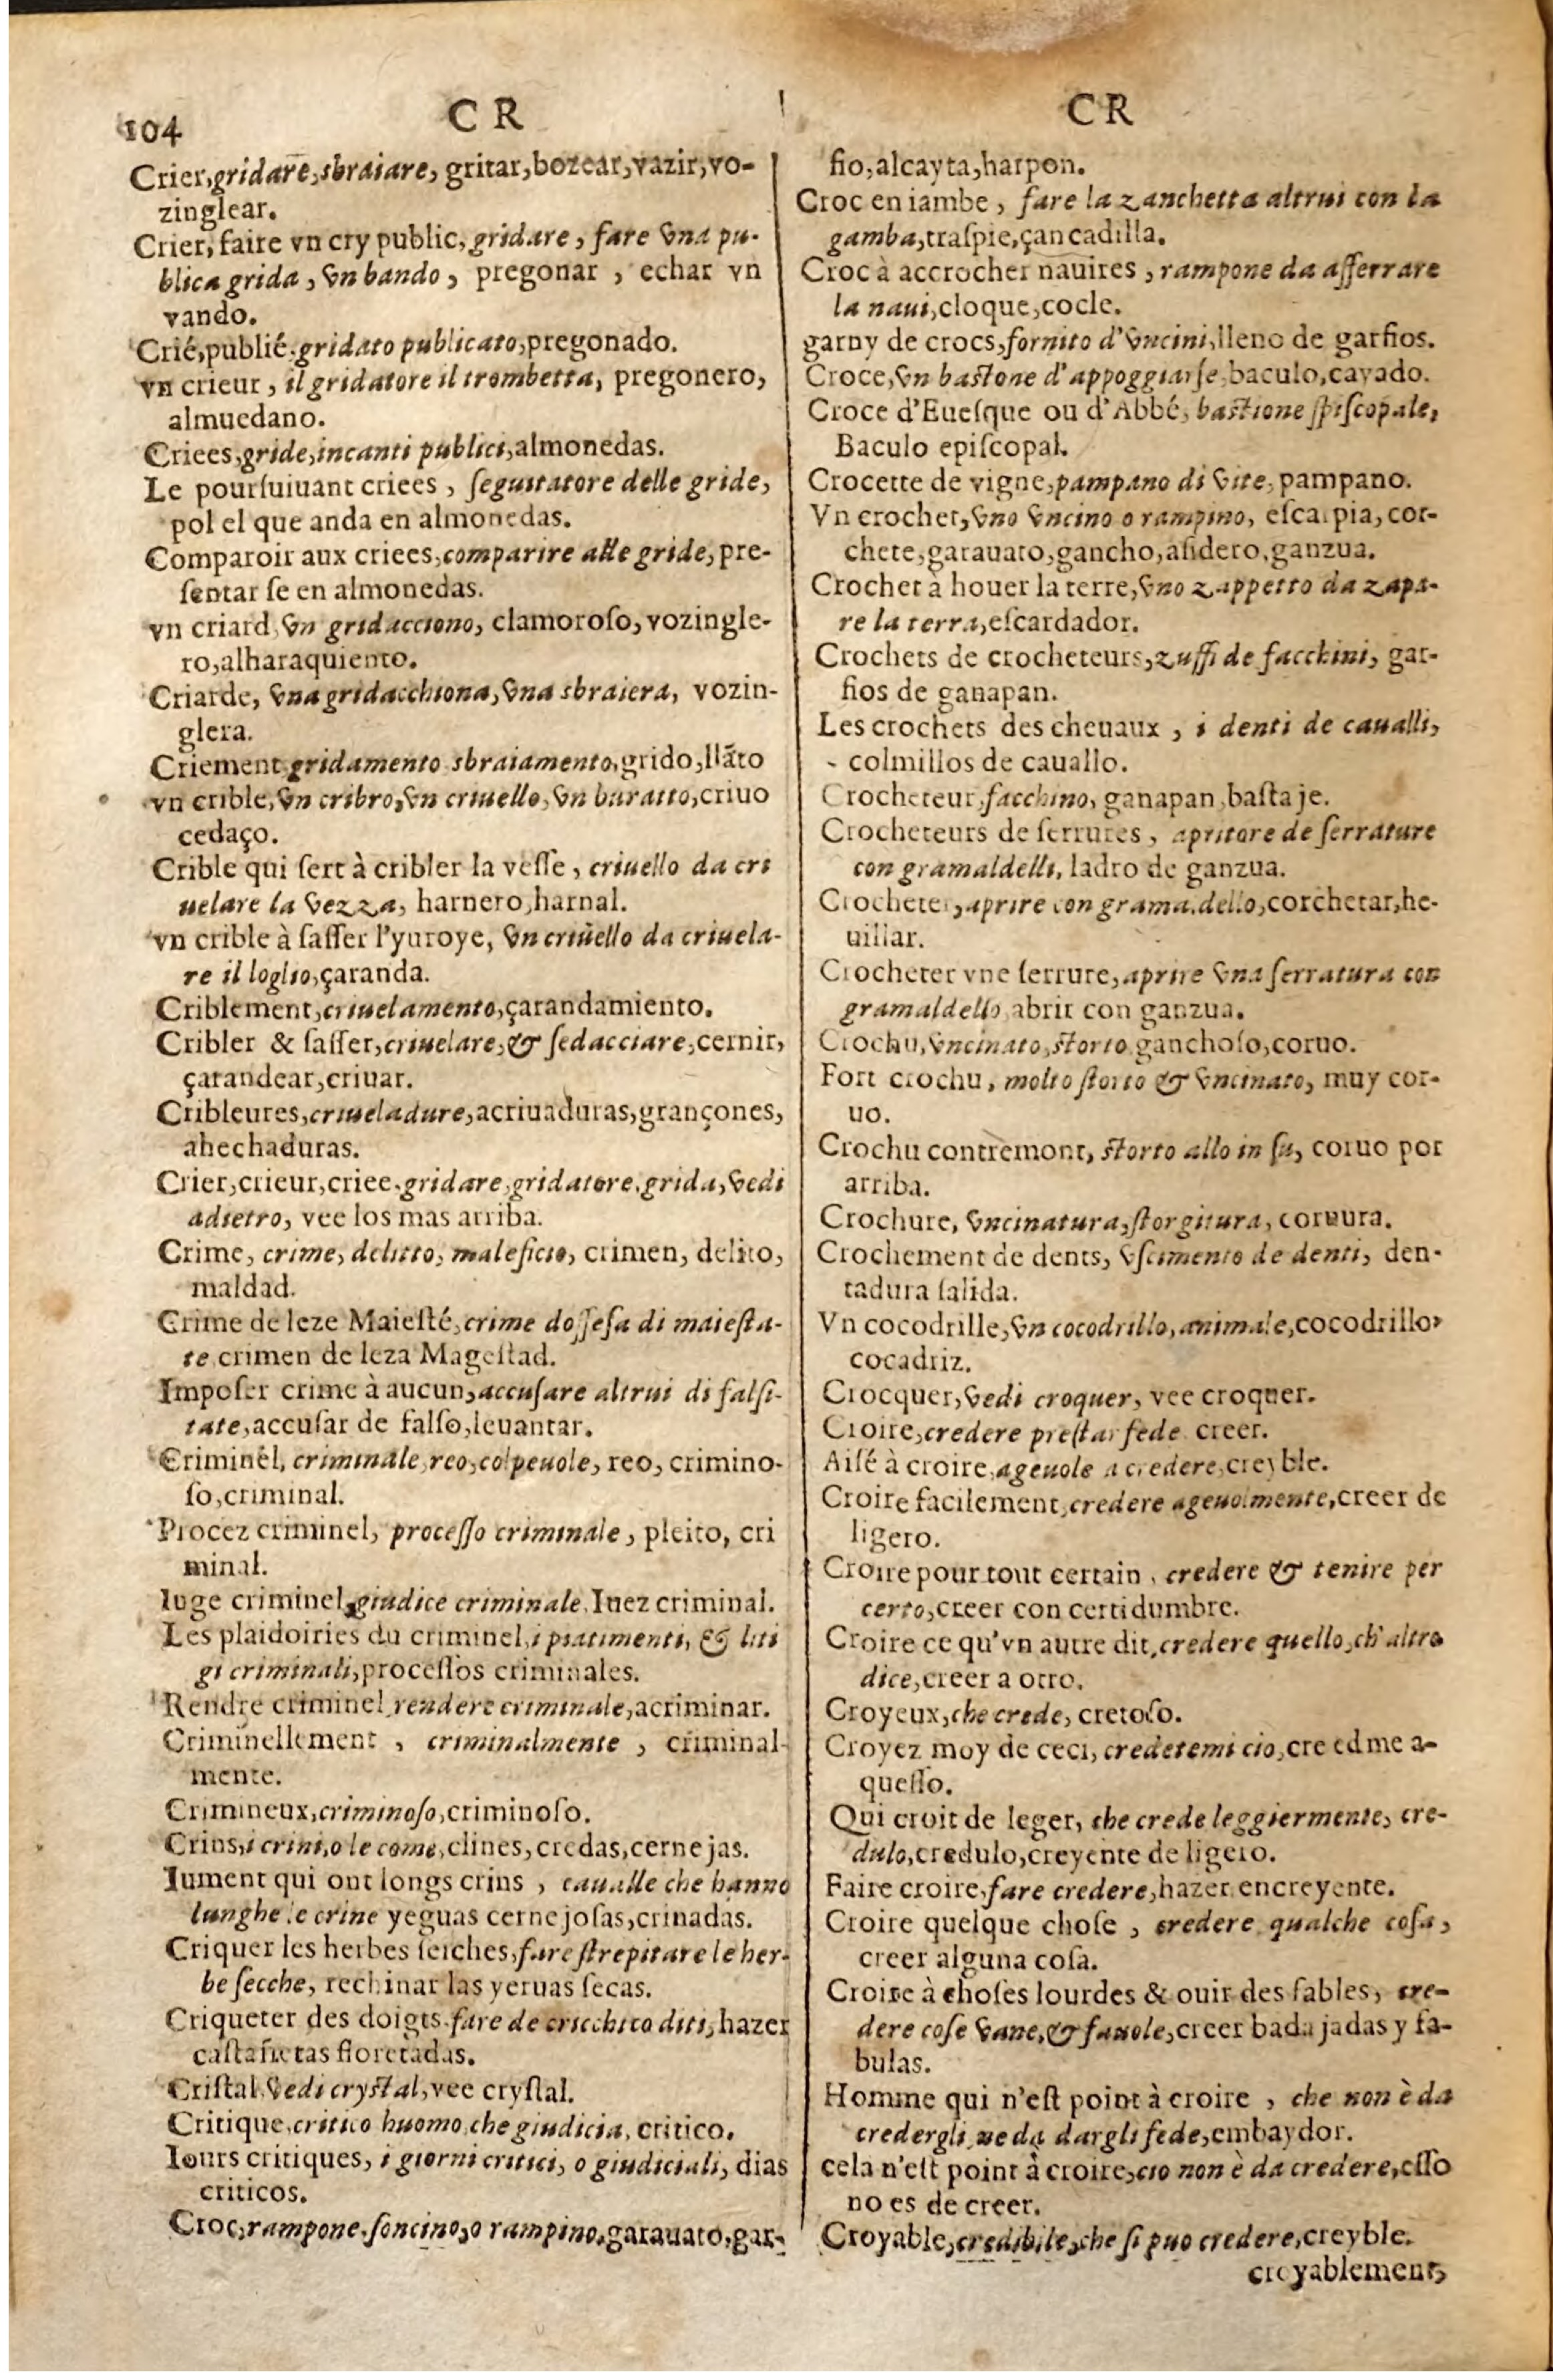 104
C R
Crier, gridare, sbraiare, gritar, bozear, vazir, vo-
zinglear.
Crier, faire vn cry public, gridare, fare vna pu-
blica grida, vn bando, pregonar, echar vn
vando.
Crié, publié, gridato publicato, pregonado.
vn crieur, il gridatore il trombetta, pregonero,
almuedano.
Criees, gride, incanti publici, almonedas.
Le pourſuiuant criees, ſeguitatore delle gride,
pol el que anda en almonedas.
Comparoir aux criees, comparire alle gride, pre-
ſentar ſe en almonedas.
vn criard, vn gridacciono, clamoroſo, vozingle-
ro, alharaquiento.
Criarde, vna gridacchiona, vna sbraiera, vozin-
glera.
Criement gridamento sbraiamento, grido, llãto
vn crible, vn cribro, vn criuello, vn buratto, criuo
cedaço.
Crible qui ſert à cribler la veſſe, criuello da cri
uelare la vezza, harnero, harnal.
vn crible à ſaſſer l'yuroye, vn criuello da criuela-
re il loglio, çaranda.
Criblement, criuelamento, çarandamiento.
Cribler & ſaſſer, criuelare, & ſedacciare, cernir,
çarandear, criuar.
Cribleures, criueladure, acriuaduras, grançones,
ahechaduras.
Crier, crieur, criee, gridare, gridatore, grida, vedi
adietro, vee los mas arriba.
Crime, crime, delitto, maleficio, crimen, delito,
maldad.
Crime de leze Maieſté, crime doſſeſa di maieſta-
te crimen de leza Mageſtad.
Impoſer crime à aucun, accuſare altrui di falſi-
tate, accuſar de falſo, leuantar.
Criminel, criminale, reo, colpeuole, reo, crimino-
ſo, criminal.
Procez criminel, proceſſo criminale, pleito, cri
minal.
Iuge criminel, giudice criminale, Iuez criminal.
Les plaidoiries du criminel, i piatimenti, & liti
gi criminali, proceſſos criminales.
Rendre criminel, rendere criminale, acriminar.
Criminellement, criminalmente, criminal-
mente.
Crimineux, criminoſo, criminoſo.
Crins, i crini, o le come, clines, credas, cernejas.
Iument qui ont longs crins, caualle che hanno
lunghe le crine yeguas cernejoſas, crinadas.
Criquer les herbes ſeiches, fare ſtrepitare le her-
be ſecche, rechinar las yeruas ſecas.
Criqueter des doigts, fare de cricchi co diti, hazer
caſtañetas fioretadas.
Criſtal, vedi cryſtal, vee cryſtal.
Critique, critico huomo che giudicia, critico.
Iours critiques, i giorni critici, o giudiciali, dias
criticos.
Croc, rampone, ſoncino, o rampino, garauato, gar-
C R
fio, alcayta, harpon.
Croc en iambe, fare la zanchetta altrui con la
gamba, traſpie, çancadilla.
Croc à accrocher nauires, rampone da afferrare
la naui, cloque, cocle.
garny de crocs, fornito d'vncini, lleno de garfios.
Croce, vn baſtone d'appoggiarſe, baculo, cayado.
Croce d'Eueſque ou d'Abbé, baſtione ſpiſcopale,
Baculo epiſcopal.
Crocette de vigne, pampano di vite, pampano.
Vn crochet, vno vncino o rampino, eſcarpia, cor-
chete, garauato, gancho, aſidero, ganzua.
Crochet à houer la terre, vno zappetto da zapa-
re la terra, eſcardador.
Crochets de crocheteurs, zuffi de facchini, gar-
fios de ganapan.
Les crochets des cheuaux, i denti de caualli,
colmillos de cauallo.
Crocheteur, facchino, ganapan, baſtaje.
Crocheteurs de ſerrures, apritore de ſerrature
con gramaldelli, ladro de ganzua.
Crocheter, aprire con gramaldello, corchetar, he-
uillar.
Crocheter vne ſerrure, aprire vna ſerratura con
gramaldello abrir con ganzua.
Crochu, vncinato, ſtorto ganchoſo, coruo.
Fort crochu, molto ſtorto & vncinato, muy cor-
uo.
Crochu contremont, ſtorto allo in ſu, coruo por
arriba.
Crochure, vncinatura, ſtorgitura, coruura.
Crochement de dents, vſcimento de denti, den-
tadura ſalida.
Vn cocodrille, vn cocodrillo, animale, cocodrillo,
cocadriz.
Crocquer, vedi croquer, vee croquer.
Croire, credere preſtar fede creer.
Aiſé à croire, ageuole a credere, creyble.
Croire facilement, credere ageuolmente, creer de
ligero.
Croire pour tout certain, credere & tenire per
certo, creer con certidumbre.
Croire ce qu'vn autre dit, credere quello, ch'altro
dice, creer a otro.
Croyeux, che crede, cretoſo.
Croyez moy de ceci, credetemi cio, cre edme a-
queſſo.
Qui croit de leger, che crede leggiermente, cre-
dulo, credulo, creyente de ligero.
Faire croire, fare credere, hazer encreyente.
Croire quelque choſe, credere qualche coſa,
creer alguna coſa.
Croire à choſes lourdes & ouir des fables, cre-
dere coſe vane, & fauole, creer badajadas y fa-
bulas.
Homme qui n'eſt point à croire, che non è da
credergli, ne da dargli fede, embaydor.
cela n'eſt point à croire, cio non è da credere, eſſo
no es de creer.
Croyable, credibile, che ſi puo credere, creyble.
croyablement,